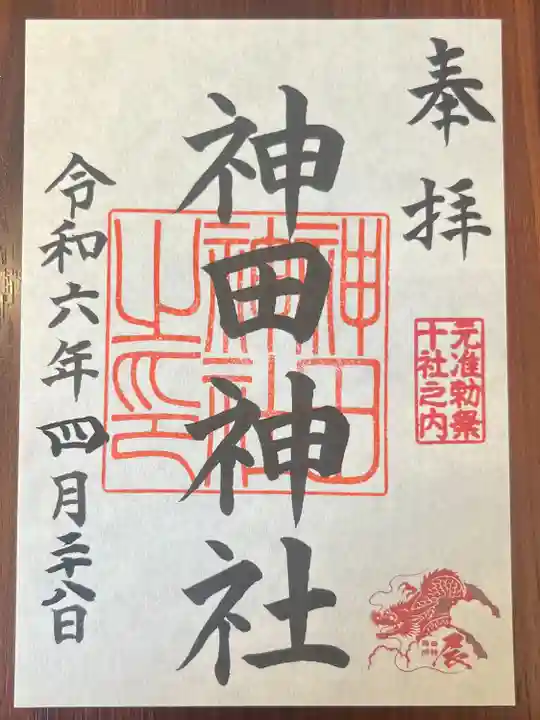 奉拝
元准勅祭
十社之内
神田神社
神田
神社
之印
令和六年四月二十八日
辰